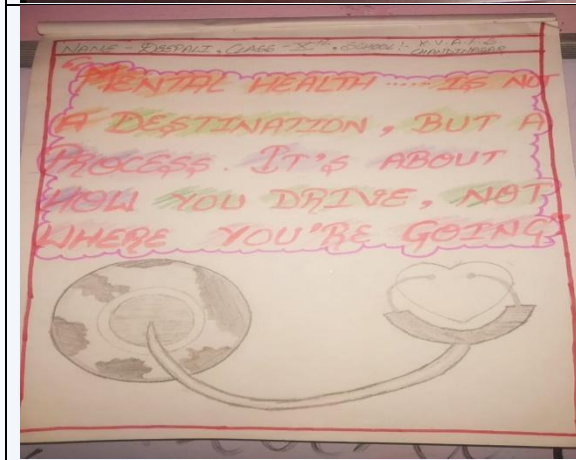 NAME - DEEPALI, CLASS - Xth, SCHOOL:- K.V.A.F.S
CHANDINAGAR
"MENTAL HEALTH .... IS NOT
A DESTINATION, BUT A
PROCESS. IT'S ABOUT
HOW YOU DRIVE, NOT
WHERE YOU'RE GOING"